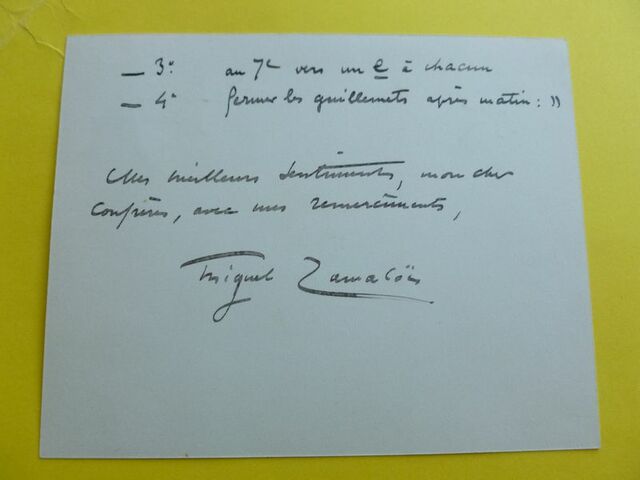 — 3° au 7e vers un e à chacun
— 4° fermer les guillemets après matin : »
Mes meilleurs sentiments, mon cher
confrère, avec mes remerciements,
Miguel Zamacoïs